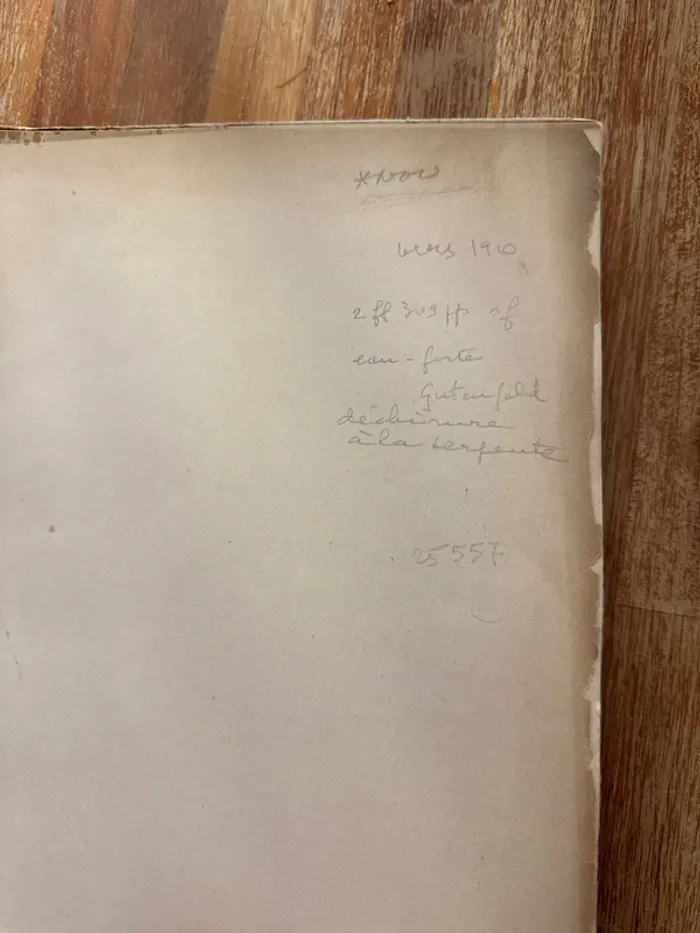 vers 1910
2 ff 309 pp
eau-forte
Gutenfeld
déchirure
à la serpente
25557